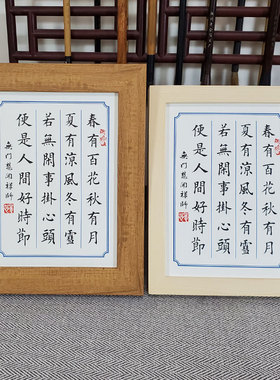 春有百花秋有月
夏有涼風冬有雪
若無閑事掛心頭
便是人間好時節
無門慧開禪師
春有百花秋有月
夏有涼風冬有雪
若無閑事掛心頭
便是人間好時節
無門慧開禪師